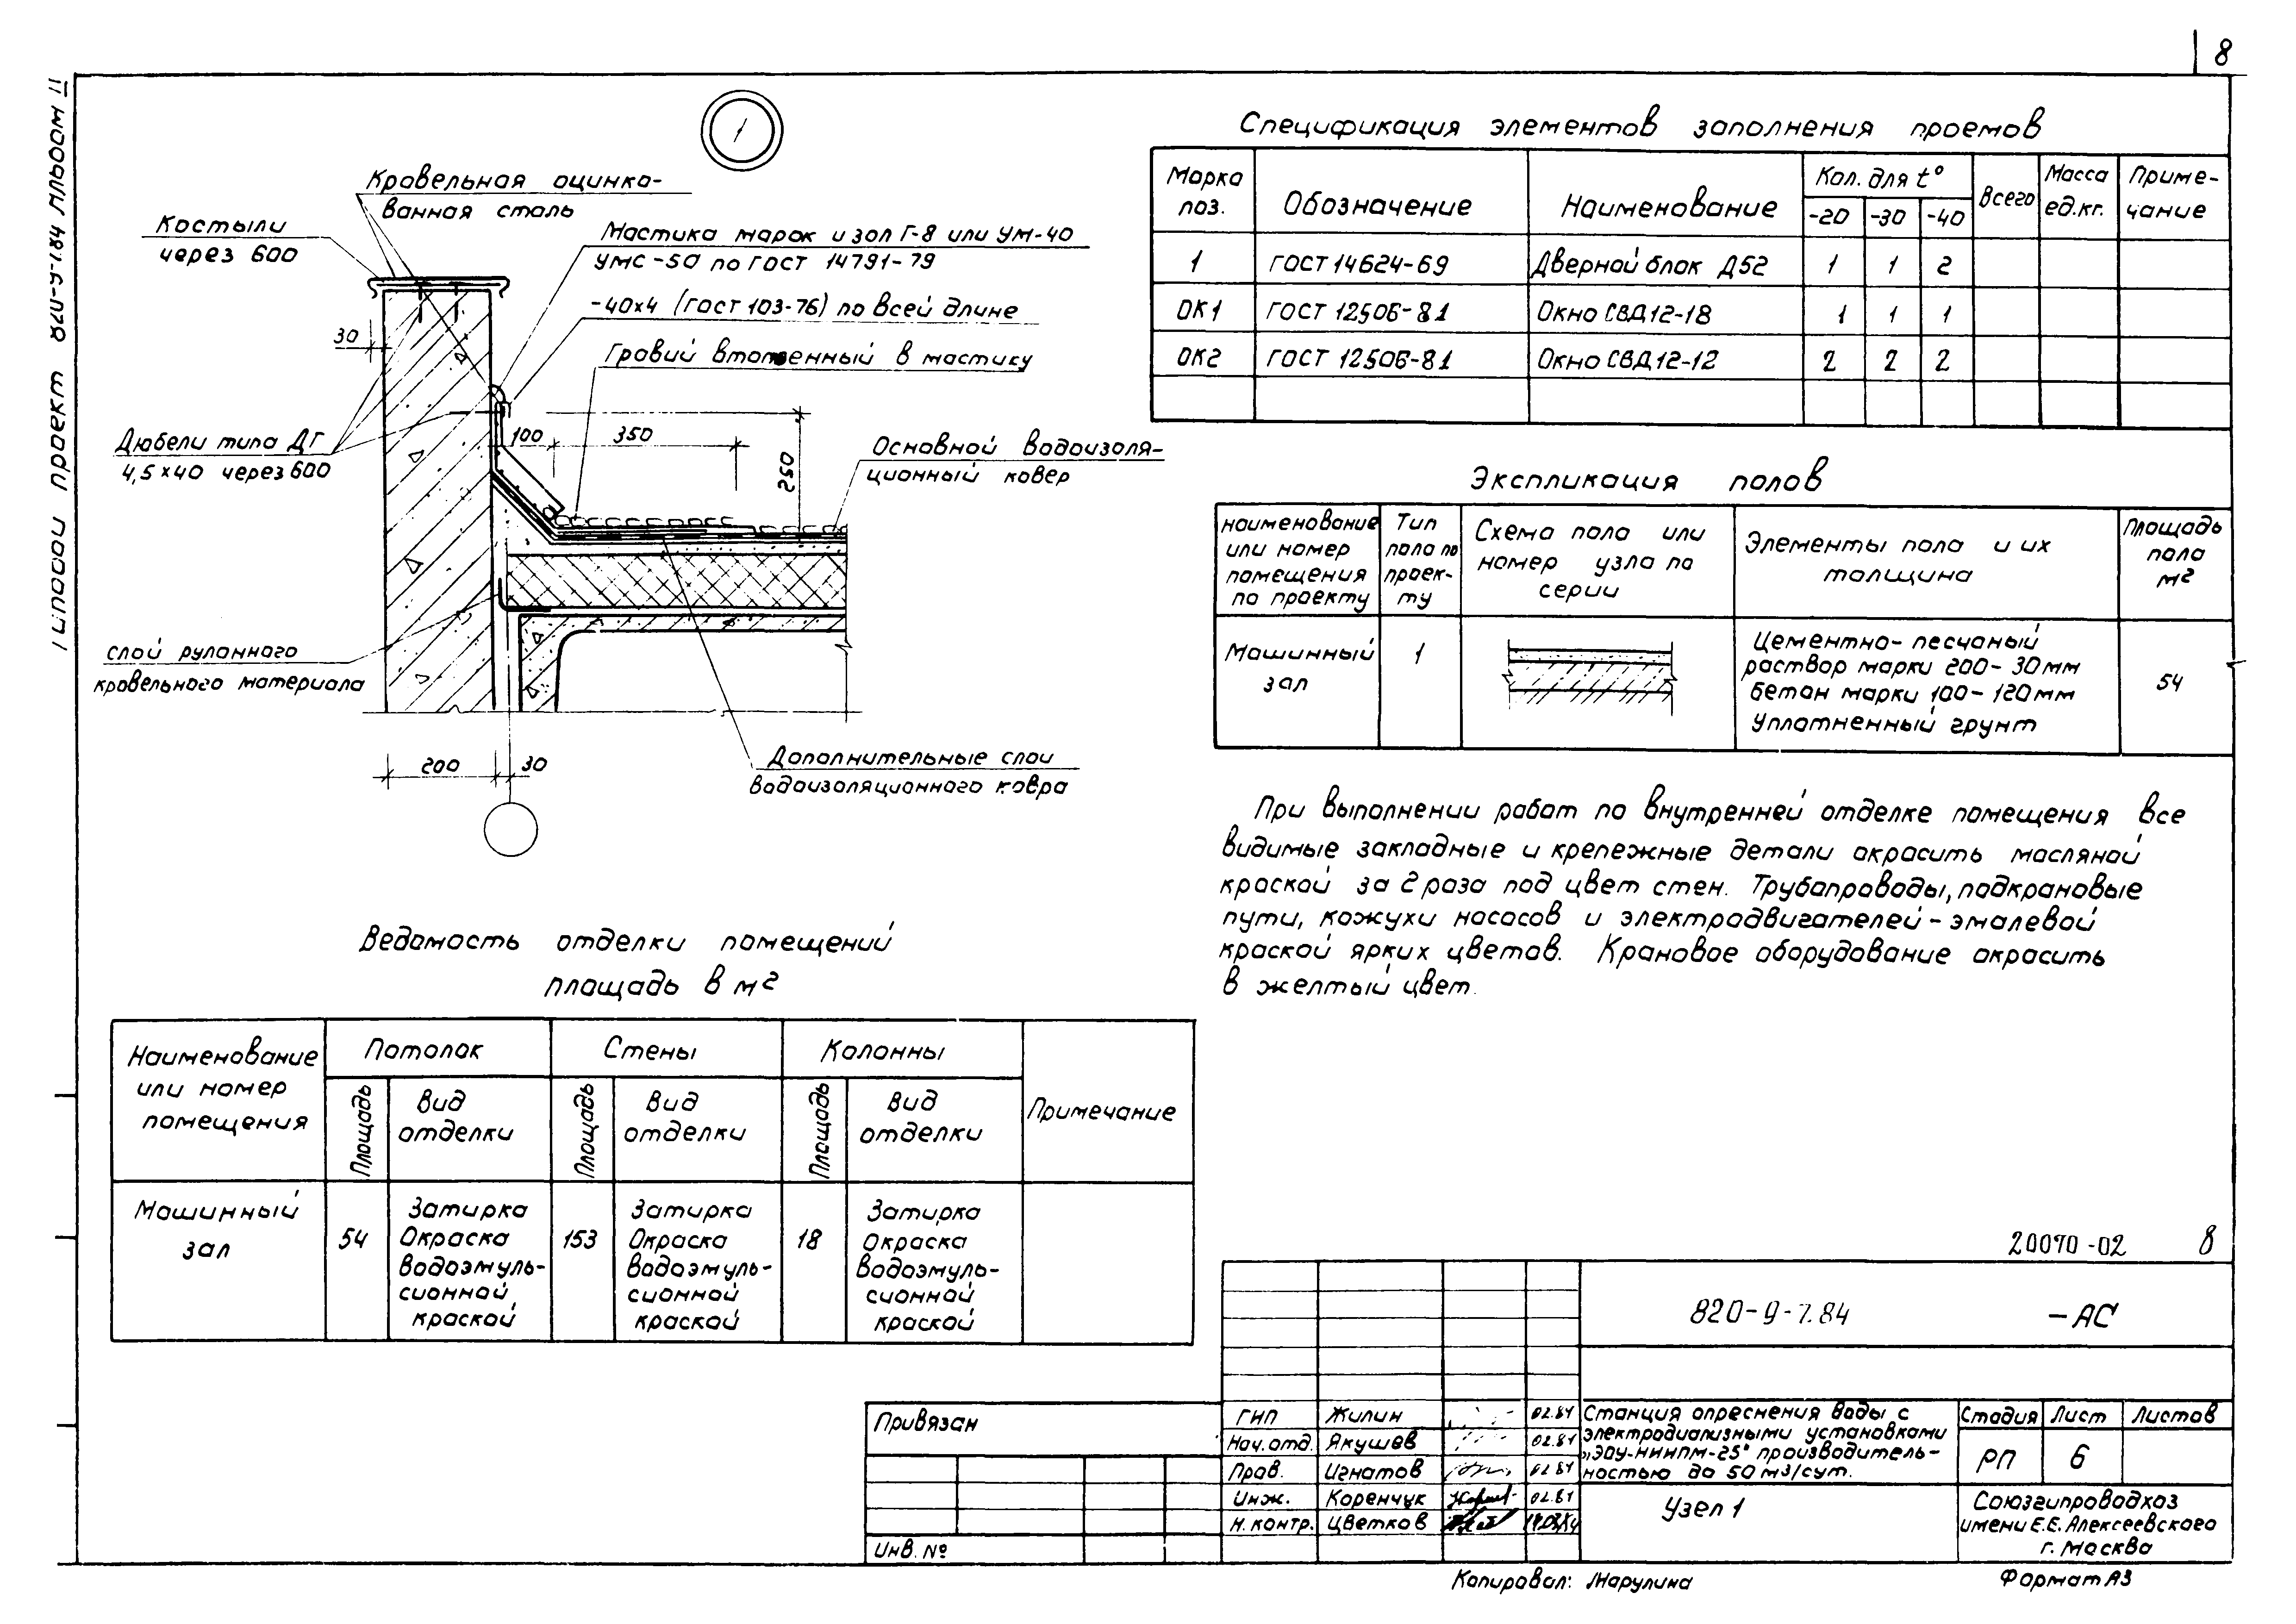 8
Типовой проект 820-9-7.84 Альбом II
1
Кровельная оцинко-
ванная сталь
Костыли
через 600
Мастика марок изол Г-8 или УМ-40
УМС-50 по ГОСТ 14791-79
-40х4 (ГОСТ 103-76) по всей длине
Гравий втопленный в мастику
30
100
350
250
Дюбели типа ДГ
4,5×40 через 600
Основной водоизоля-
ционный ковер
слой рулонного
кровельного материала
200
30
Дополнительные слои
водоизоляционного ковра
Спецификация элементов заполнения проемов
Марка поз. Обозначение Наименование Кол. для t° Всего Масса ед.кг. Приме-чание
-20 -30 -40
1 ГОСТ 14624-69 Дверной блок Д52 1 1 2
ОК1 ГОСТ 12506-81 Окно СВД12-18 1 1 1
ОК2 ГОСТ 12506-81 Окно СВД12-12 2 2 2
Экспликация полов
наименование или номер помещения по проекту
Тип пола по проек-ту
Схема пола или номер узла по серии
Элементы пола и их толщина
Площадь пола м2
Машинный зал
1
Цементно-песчаный
раствор марки 200-30мм
бетон марки 100-120мм
Уплотненный грунт
54
При выполнении работ по внутренней отделке помещения все
видимые закладные и крепежные детали окрасить масляной
краской за 2 раза под цвет стен. Трубопроводы, подкрановые
пути, кожухи насосов и электродвигателей-эмалевой
краской ярких цветов. Крановое оборудование окрасить
в желтый цвет.
Ведомость отделки помещений
площадь в м2
Наименование или номер помещения
Потолок Стены Колонны Примечание
Площадь Вид отделки Площадь Вид отделки Площадь Вид отделки
Машинный зал
54 Затирка Окраска водоэмуль-сионной краской
153 Затирка Окраска водоэмуль-сионной краской
18 Затирка Окраска водоэмуль-сионной краской
20070-02 8
820-9-7.84 -АС
Привязан
Инв. №
ГИП Жилин 02.84
Нач. отд. Якушев 02.84
Пров. Игнатов 02.84
Инж. Коренчук 02.84
Н. контр. Цветков
Станция опреснения воды с
электродиализными установками
„ЭДУ-НИИПМ-25" производитель-
ностью до 50 м3/сут.
Стадия Лист Листов
РП 6
Узел 1
Союзгипроводхоз
имени Е.Е. Алексеевского
г. Москва
Копировал: Жарулина
Формат А3